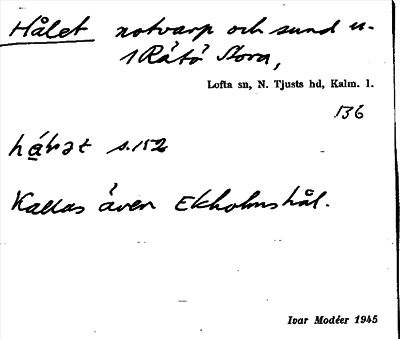 Hålet notvarp och sund u-
1 Råtö Stora,
Lofta sn, N. Tjusts hd, Kalm. l.
136
s. 152
Kallas även Ekholmshål.
Ivar Modéer 1945